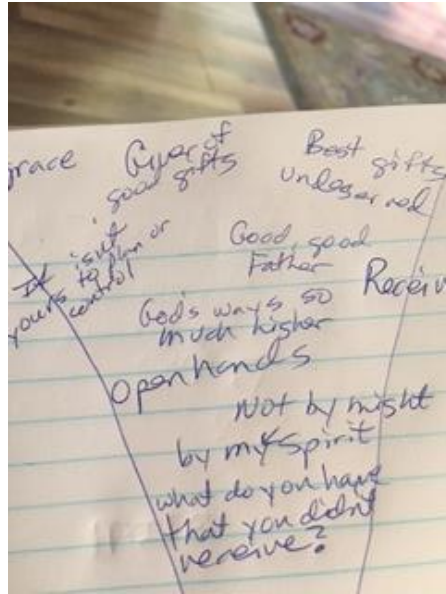 grace
Giver of
good gifts
Best gifts
undeserved
It isn't
yours to plan or
control
Good, good
Father
Receiv
God's ways so
much higher
Open hands
Not by might
by my spirit
what do you have
that you didn't
receive?